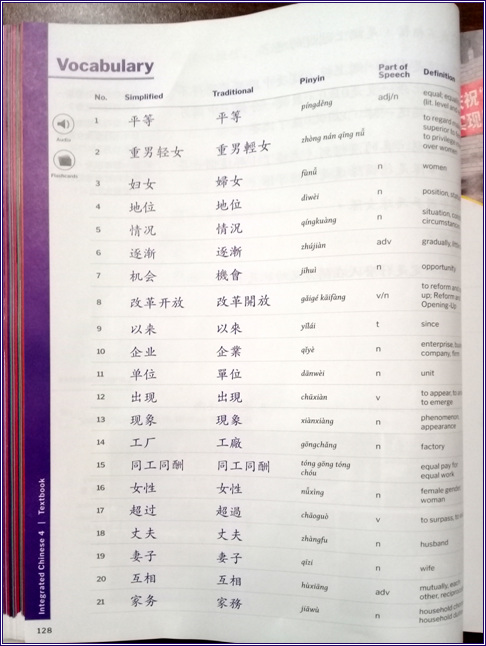 Vocabulary
No. Simplified Traditional Pinyin Part of Speech Definition
1 平等 平等 píngděng adj/n equal;
(lit. level and
2 重男轻女 重男輕女 zhòng nán qīng nǚ to regard
superior to
to privilege
over women
3 妇女 婦女 fùnǚ n women
4 地位 地位 dìwèi n position,
5 情况 情況 qíngkuàng n situation,
circumstance
6 逐渐 逐漸 zhújiàn adv gradually,
7 机会 機會 jīhuì n opportunity
8 改革开放 改革開放 gǎigé kāifàng v/n to reform and
up; Reform
Opening-Up
9 以来 以來 yǐlái t since
10 企业 企業 qǐyè n enterprise,
company, firm
11 单位 單位 dānwèi n unit
12 出现 出現 chūxiàn v to appear, to
to emerge
13 现象 現象 xiànxiàng n phenomenon,
appearance
14 工厂 工廠 gōngchǎng n factory
15 同工同酬 同工同酬 tóng gōng tóng chóu equal pay for
equal work
16 女性 女性 nǚxìng n female gender,
woman
17 超过 超過 chāoguò v to surpass, to
18 丈夫 丈夫 zhàngfu n husband
19 妻子 妻子 qīzi n wife
20 互相 互相 hùxiāng adv mutually,
other,
21 家务 家務 jiāwù n household
household
Audio
Flashcards
Integrated Chinese 4 | Textbook
128
祝
现